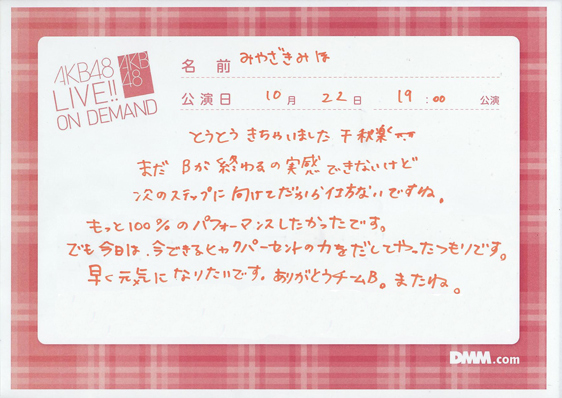 AKB48
LIVE!!
ON DEMAND
AKB
48
名 前 みやざきみほ
公演日 10月 22日 19:00 公演
とうとう きちゃいました 千秋楽
まだ Bが 終わるの実感できないけど
次のステップに向けてだから仕方ないですね。
もっと100%のパフォーマンスしたかったです。
でも今日は、今できるヒャクパーセントの力をだしてやったつもりです。
早く元気になりたいです。ありがとうチームB。またね。
DMM.com